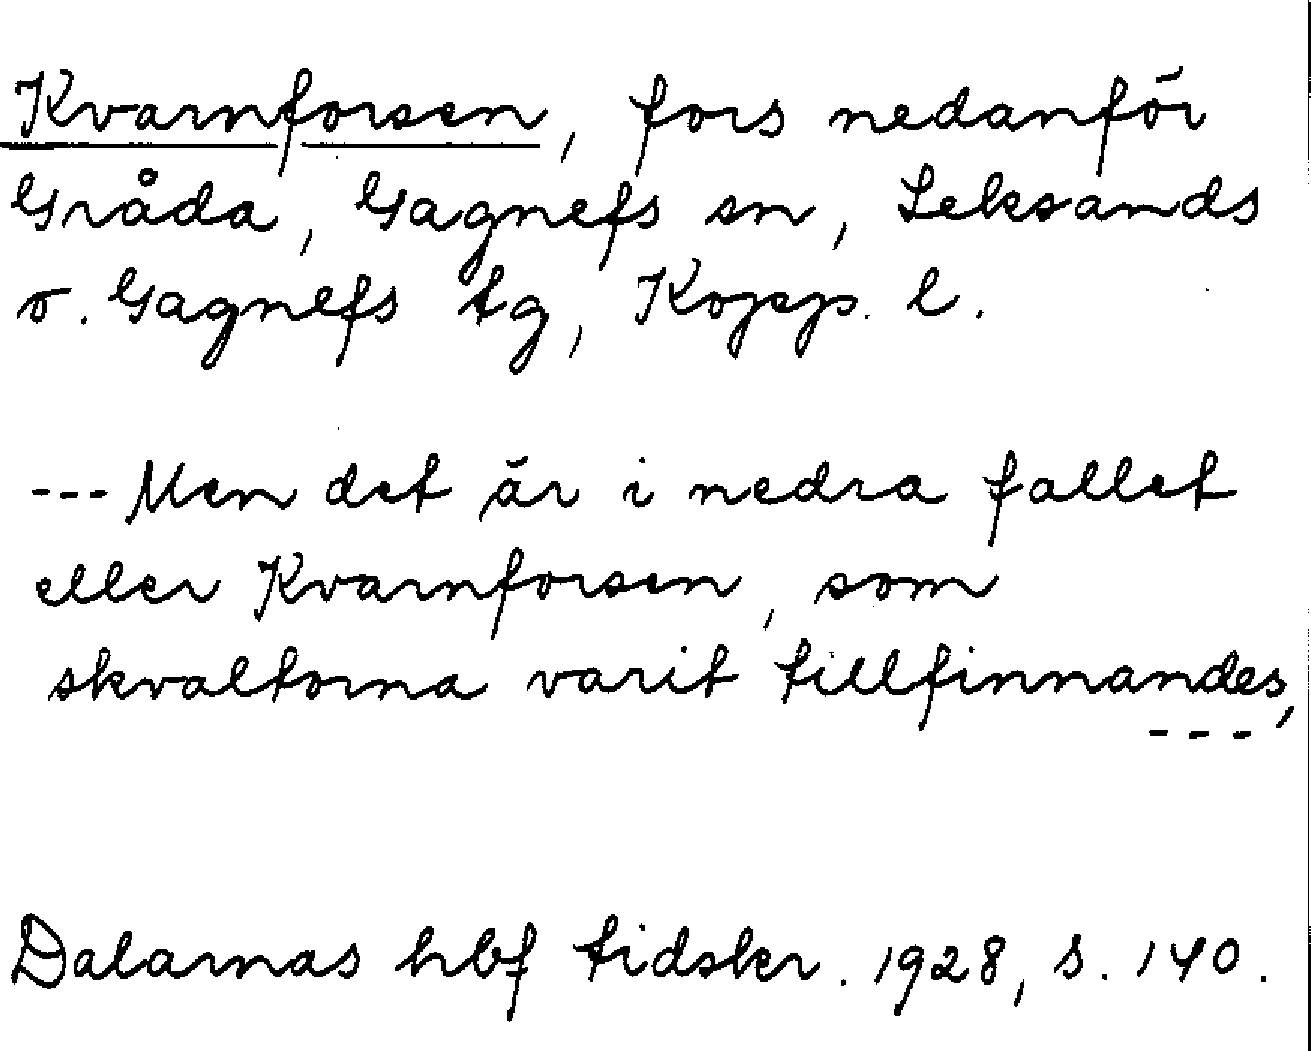 Kvarnforsen, fors nedanför
Gråda, Gagnefs sn, Leksands
o. Gagnefs tg, Kopp. l.
--- Men det är i nedra fallet
eller Kvarnforsen, som
skvaltorna varit tillfinnandes,
---
Dalarnas hbf tidskr. 1928, s. 140.